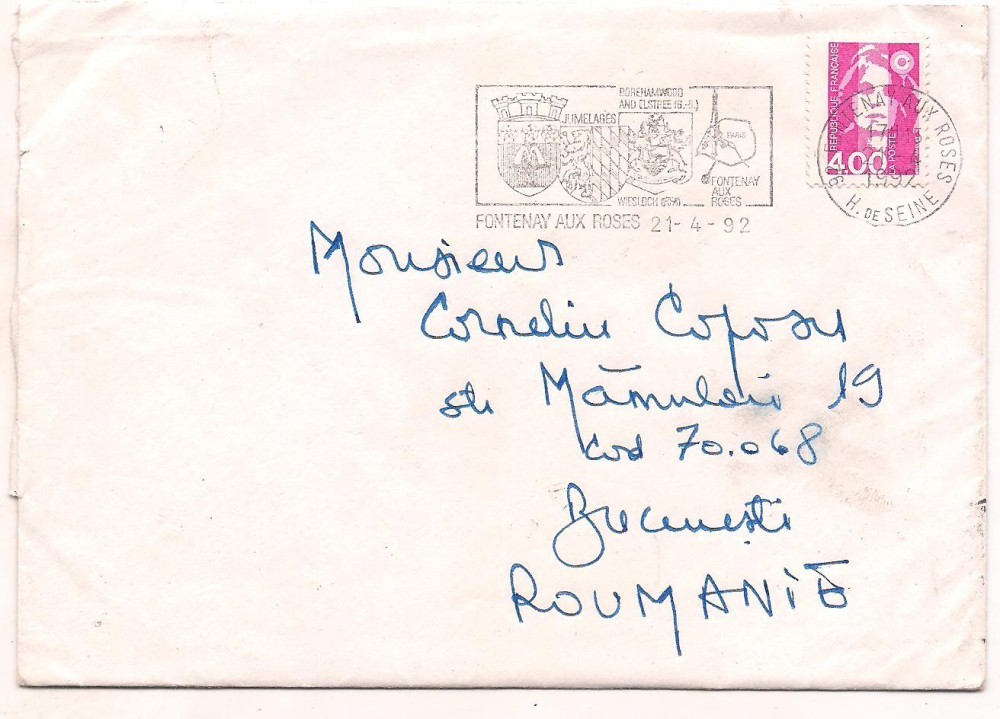 BOREHAMWOOD
AND ELSTREE (G.-B.)
JUMELAGES
PARIS
WIESLOCH (RFA)
FONTENAY
AUX
ROSES
FONTENAY AUX ROSES 21-4-92
REPUBLIQUE FRANÇAISE
LA POSTE
4.00
FONTENAY AUX ROSES
H. DE SEINE
Monsieur
Corneliu Coposu
str Mămulari 19
cod 70.068
București
ROUMANIE